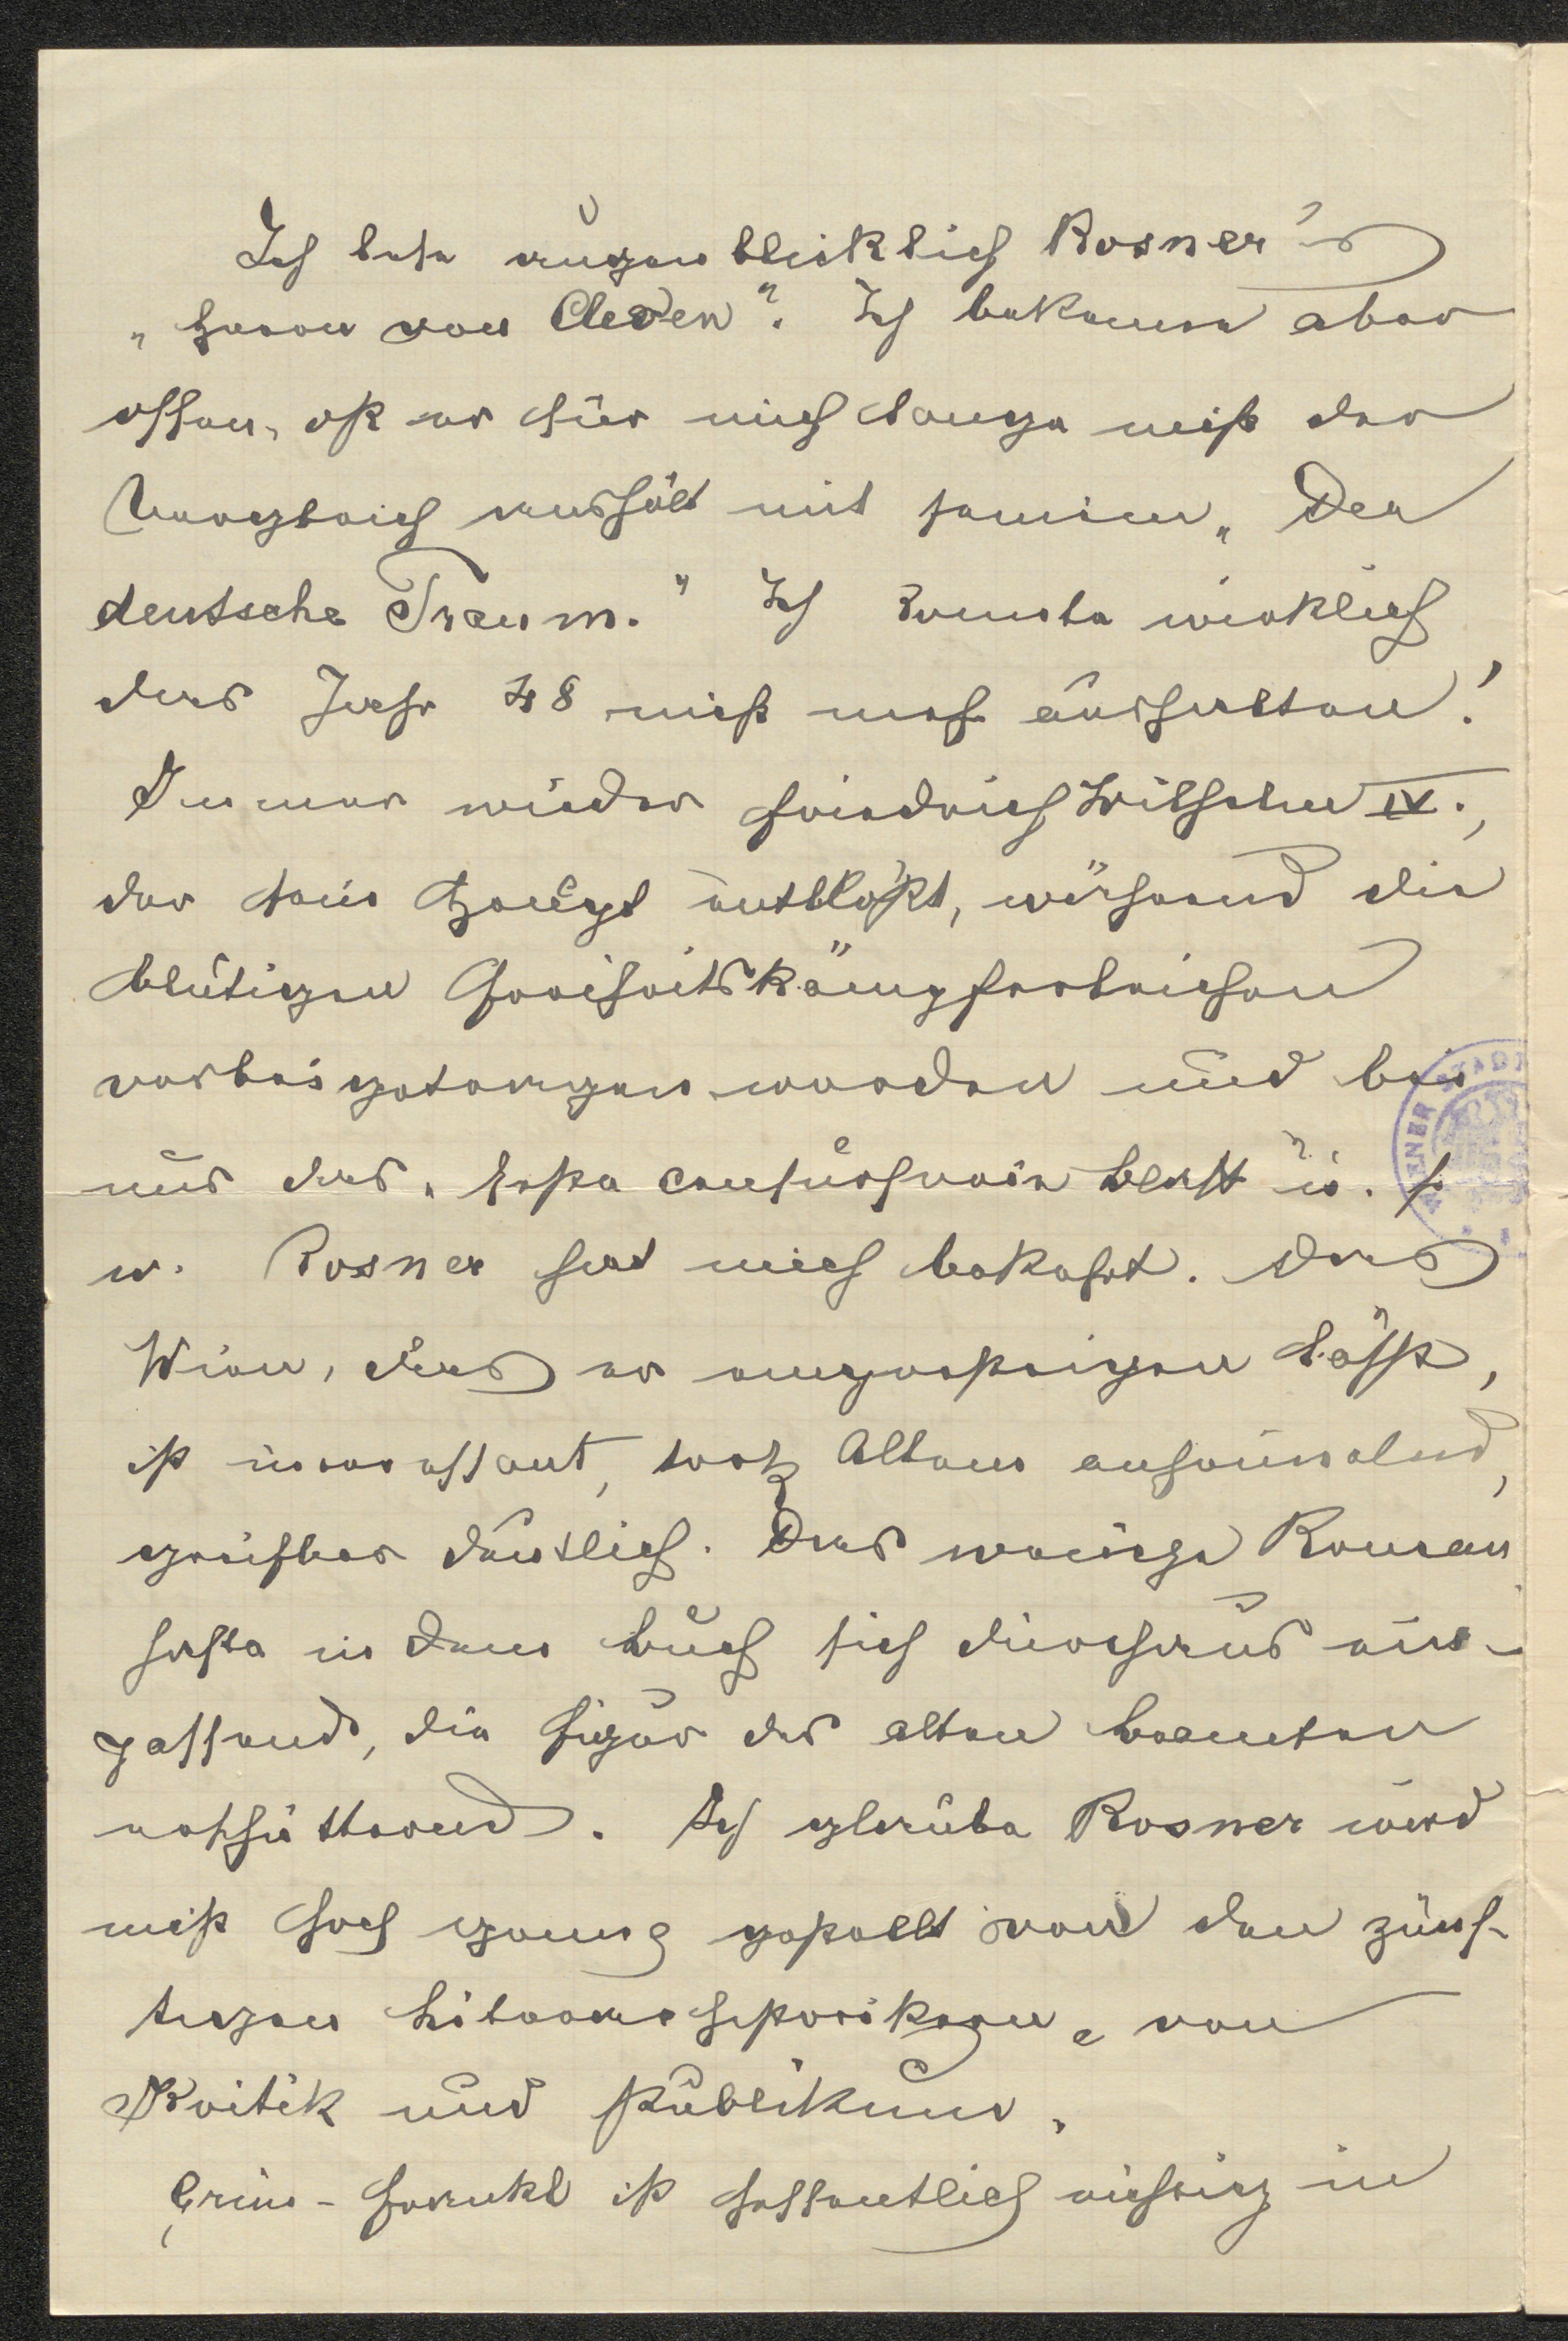 Ich lese augenblicklich Rosner's
„Herren von Cleven". Ich bekenne aber
offen, daß es für mich lange nicht den
Vergleich aushält mit seinem „Der
deutsche Traum." Ich konnte wirklich
das Jahr 48 nicht mehr aushalten!
Immer wieder Friedrich Wilhelm IV.,
der sein Haupt entblößt, während die
blutigen Freiheitskämpferleichen
vorbei getragen werden und bei
uns das „ u. s.
w. Rosner hat mich bekehrt. Das
Wien, das er emporsteigen läßt,
ist interessant, trotz Altem anheimelnd,
greifbar deutlich. Das wenige Roman
hafte in dem Buch sich durchaus ein-
passend, die Figur des alten Beamten
erschütternd. Ich glaube Rosner wird
nicht hoch genug gestellt von den zünf-
tigen Literarhistorikern, von
Kritik und Publikum.
Grün-Handl ist hoffentlich richtig in
WIENER STADT